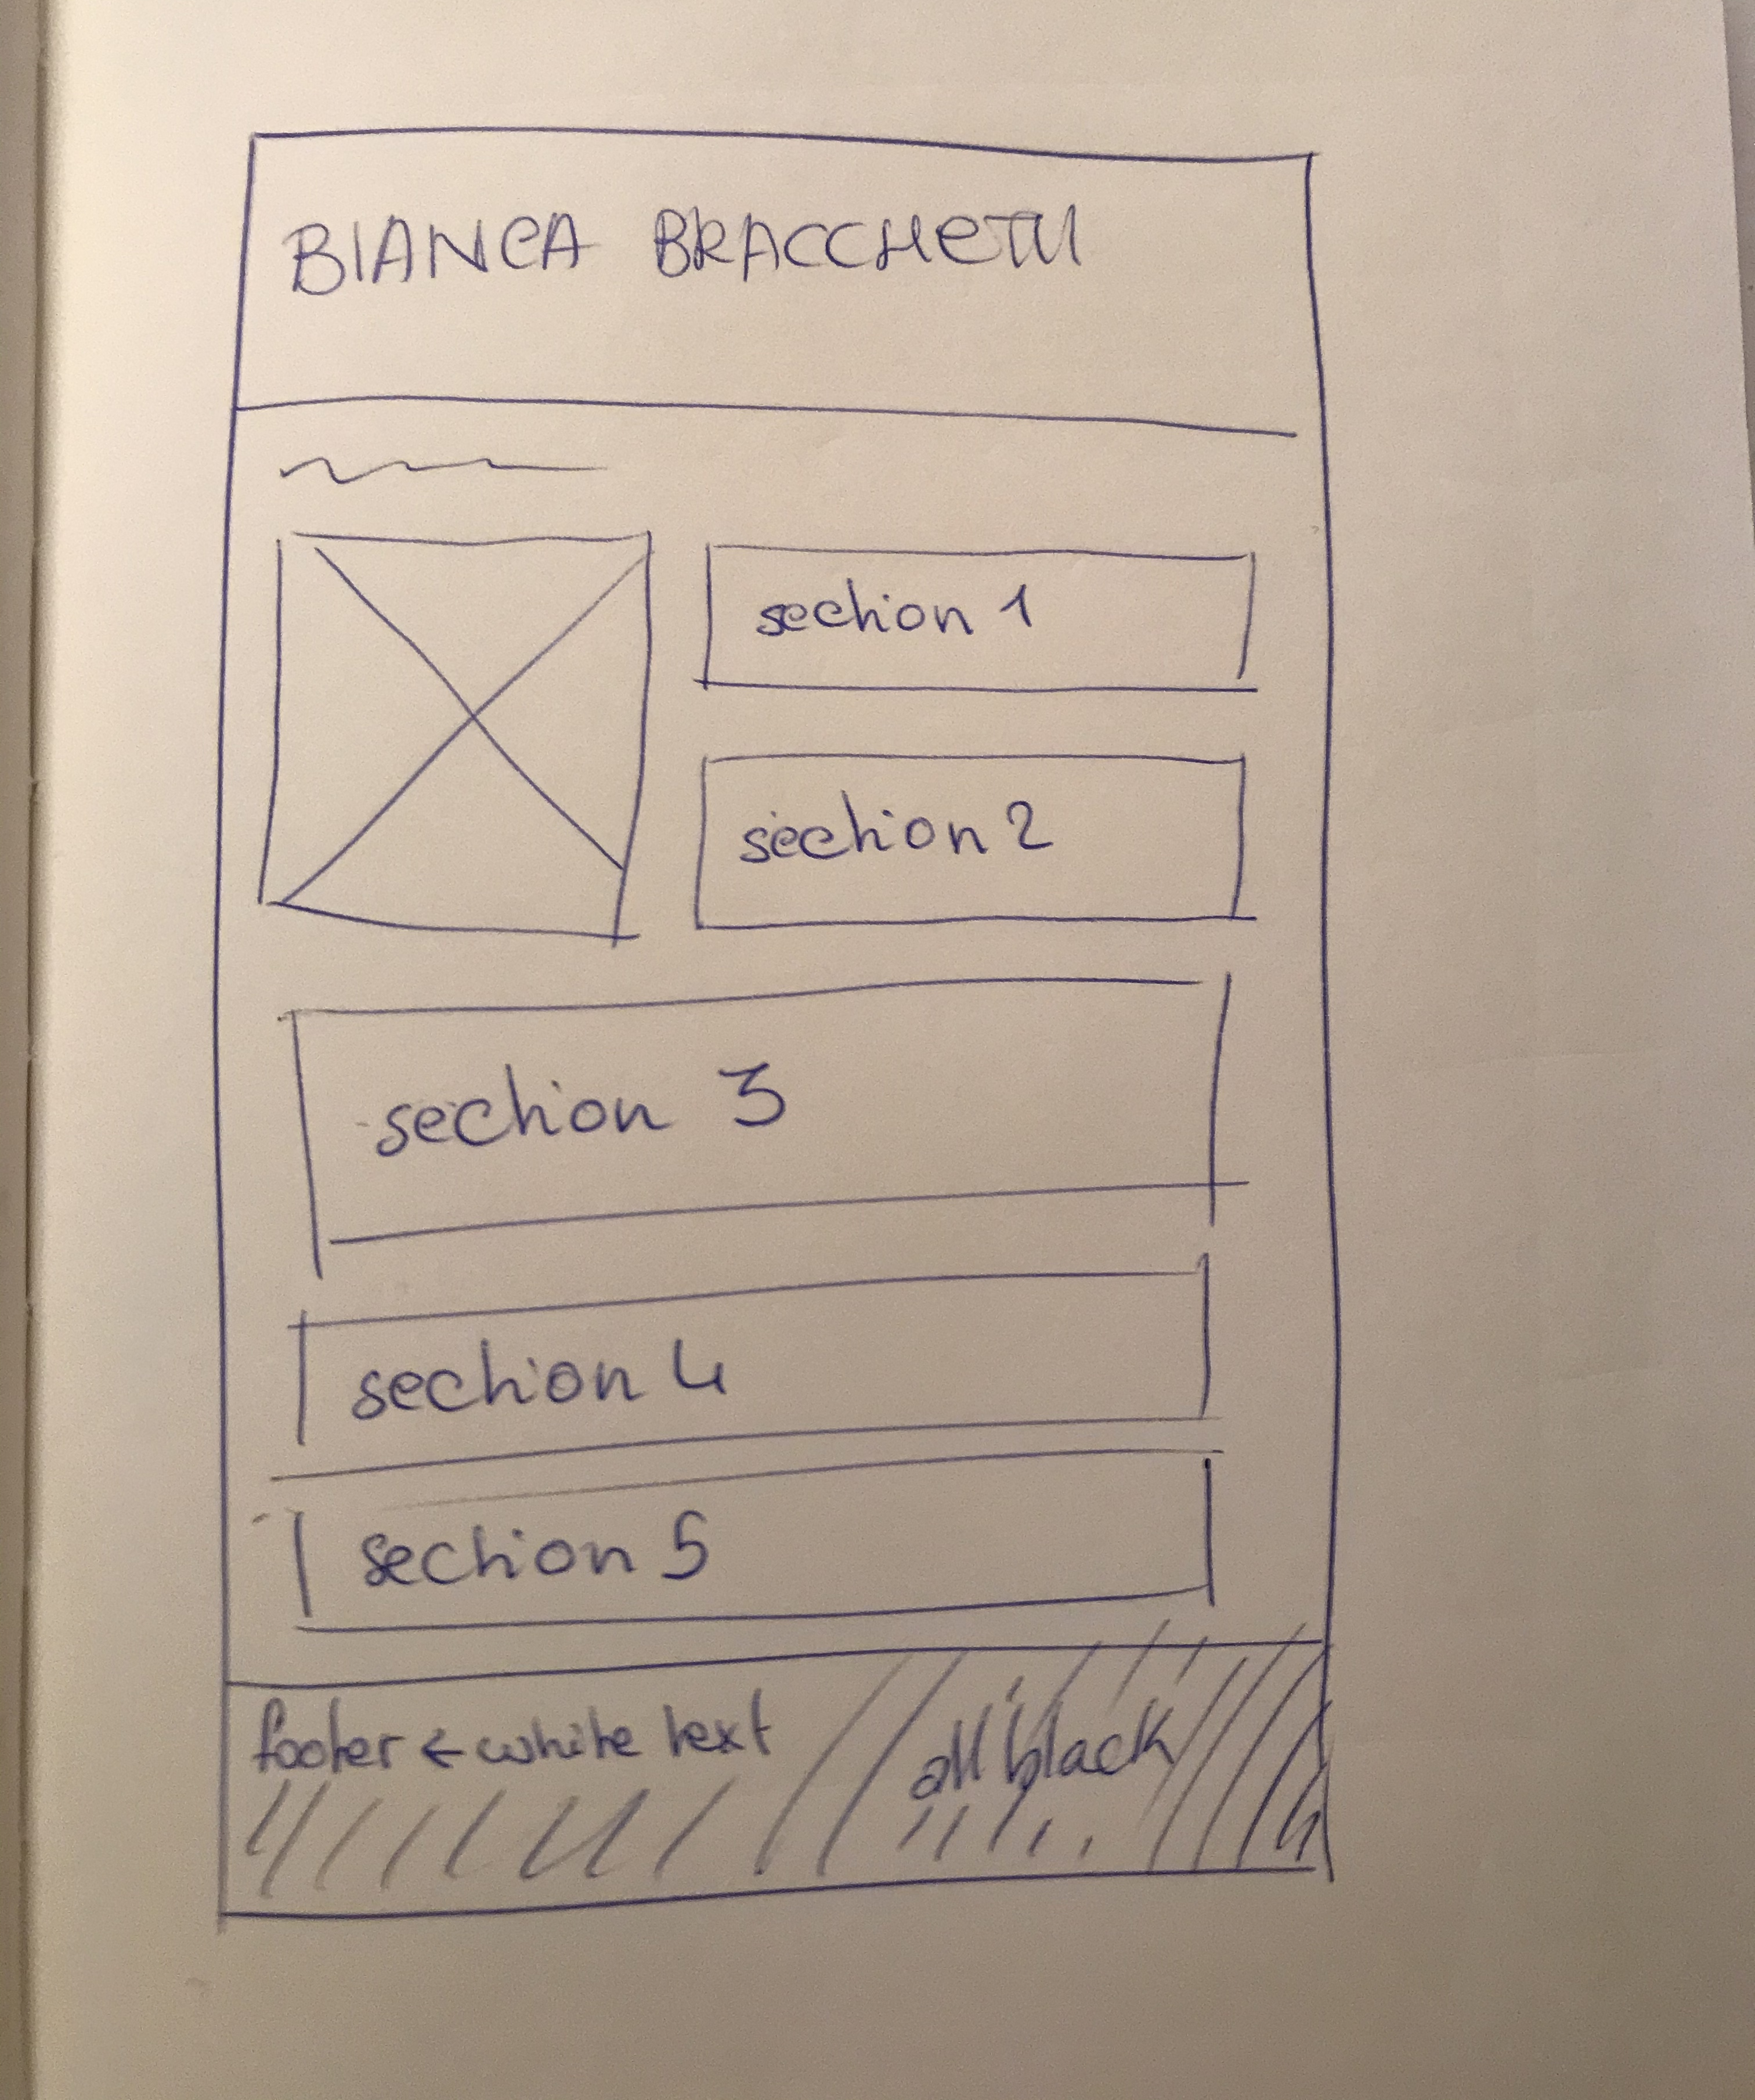 BIANCA BRACCHETTI
section 1
section 2
section 3
section 4
section 5
footer ← white text
all black